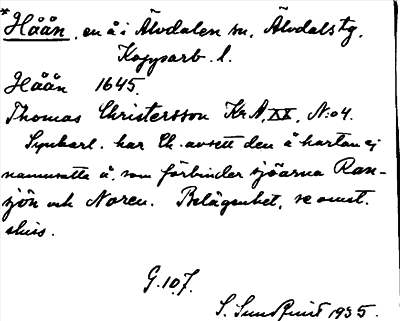 *Håån, en å i Älvdalen sn, Älvdals tg,
Kopparb. l.
Håån 1645.
Thomas Christersson Kr.A, XX, N:o 4.
Synbarl. har Ch. avsett den å kartan ej
namnsatta å, som förbinder sjöarna Ran-
sjön och Noren. Belägenhet, se omst.
skiss.
G. 107.
S. Sundquist 1935.